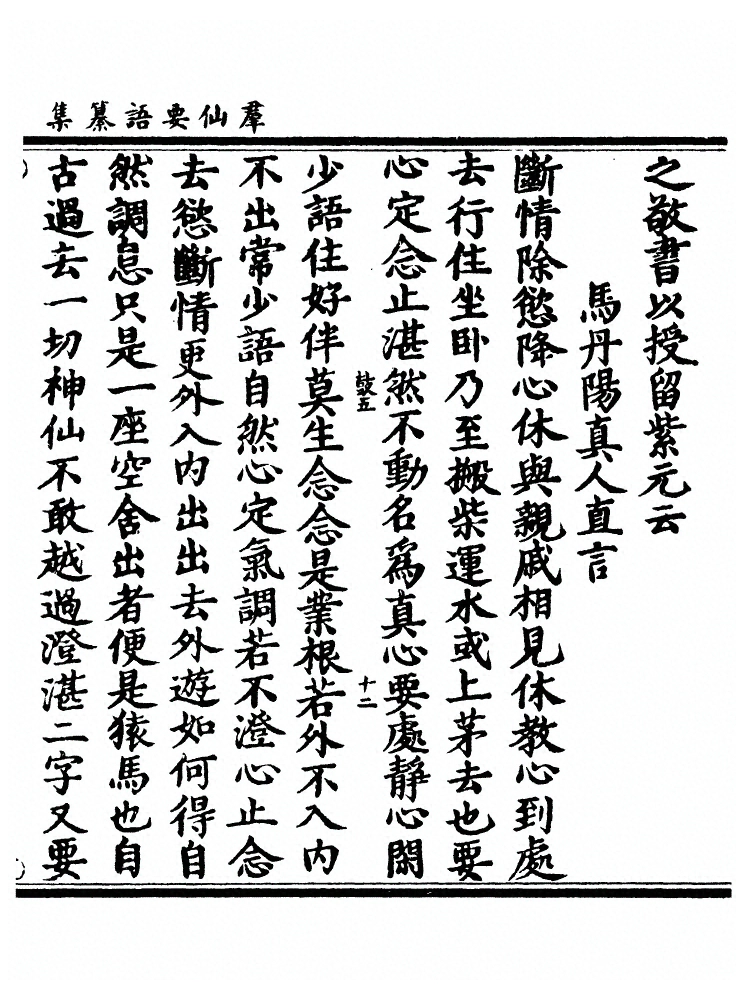 羣仙要語纂集
之敬書以授留紫元云
馬丹陽真人直言
斷情除慾降心休與親戚相見休教心到處
去行住坐卧乃至搬柴運水或上茅去也要
心定念止湛然不動名爲真心要處靜心閑
鼓五
十二
少語住好伴莫生念念是業根若外不入内
不出常少語自然心定氣調若不澄心止念
去慾斷情更外入内出出去外遊如何得自
然調息只是一座空舍出者便是猿馬也自
古過去一切神仙不敢越過澄湛二字又要